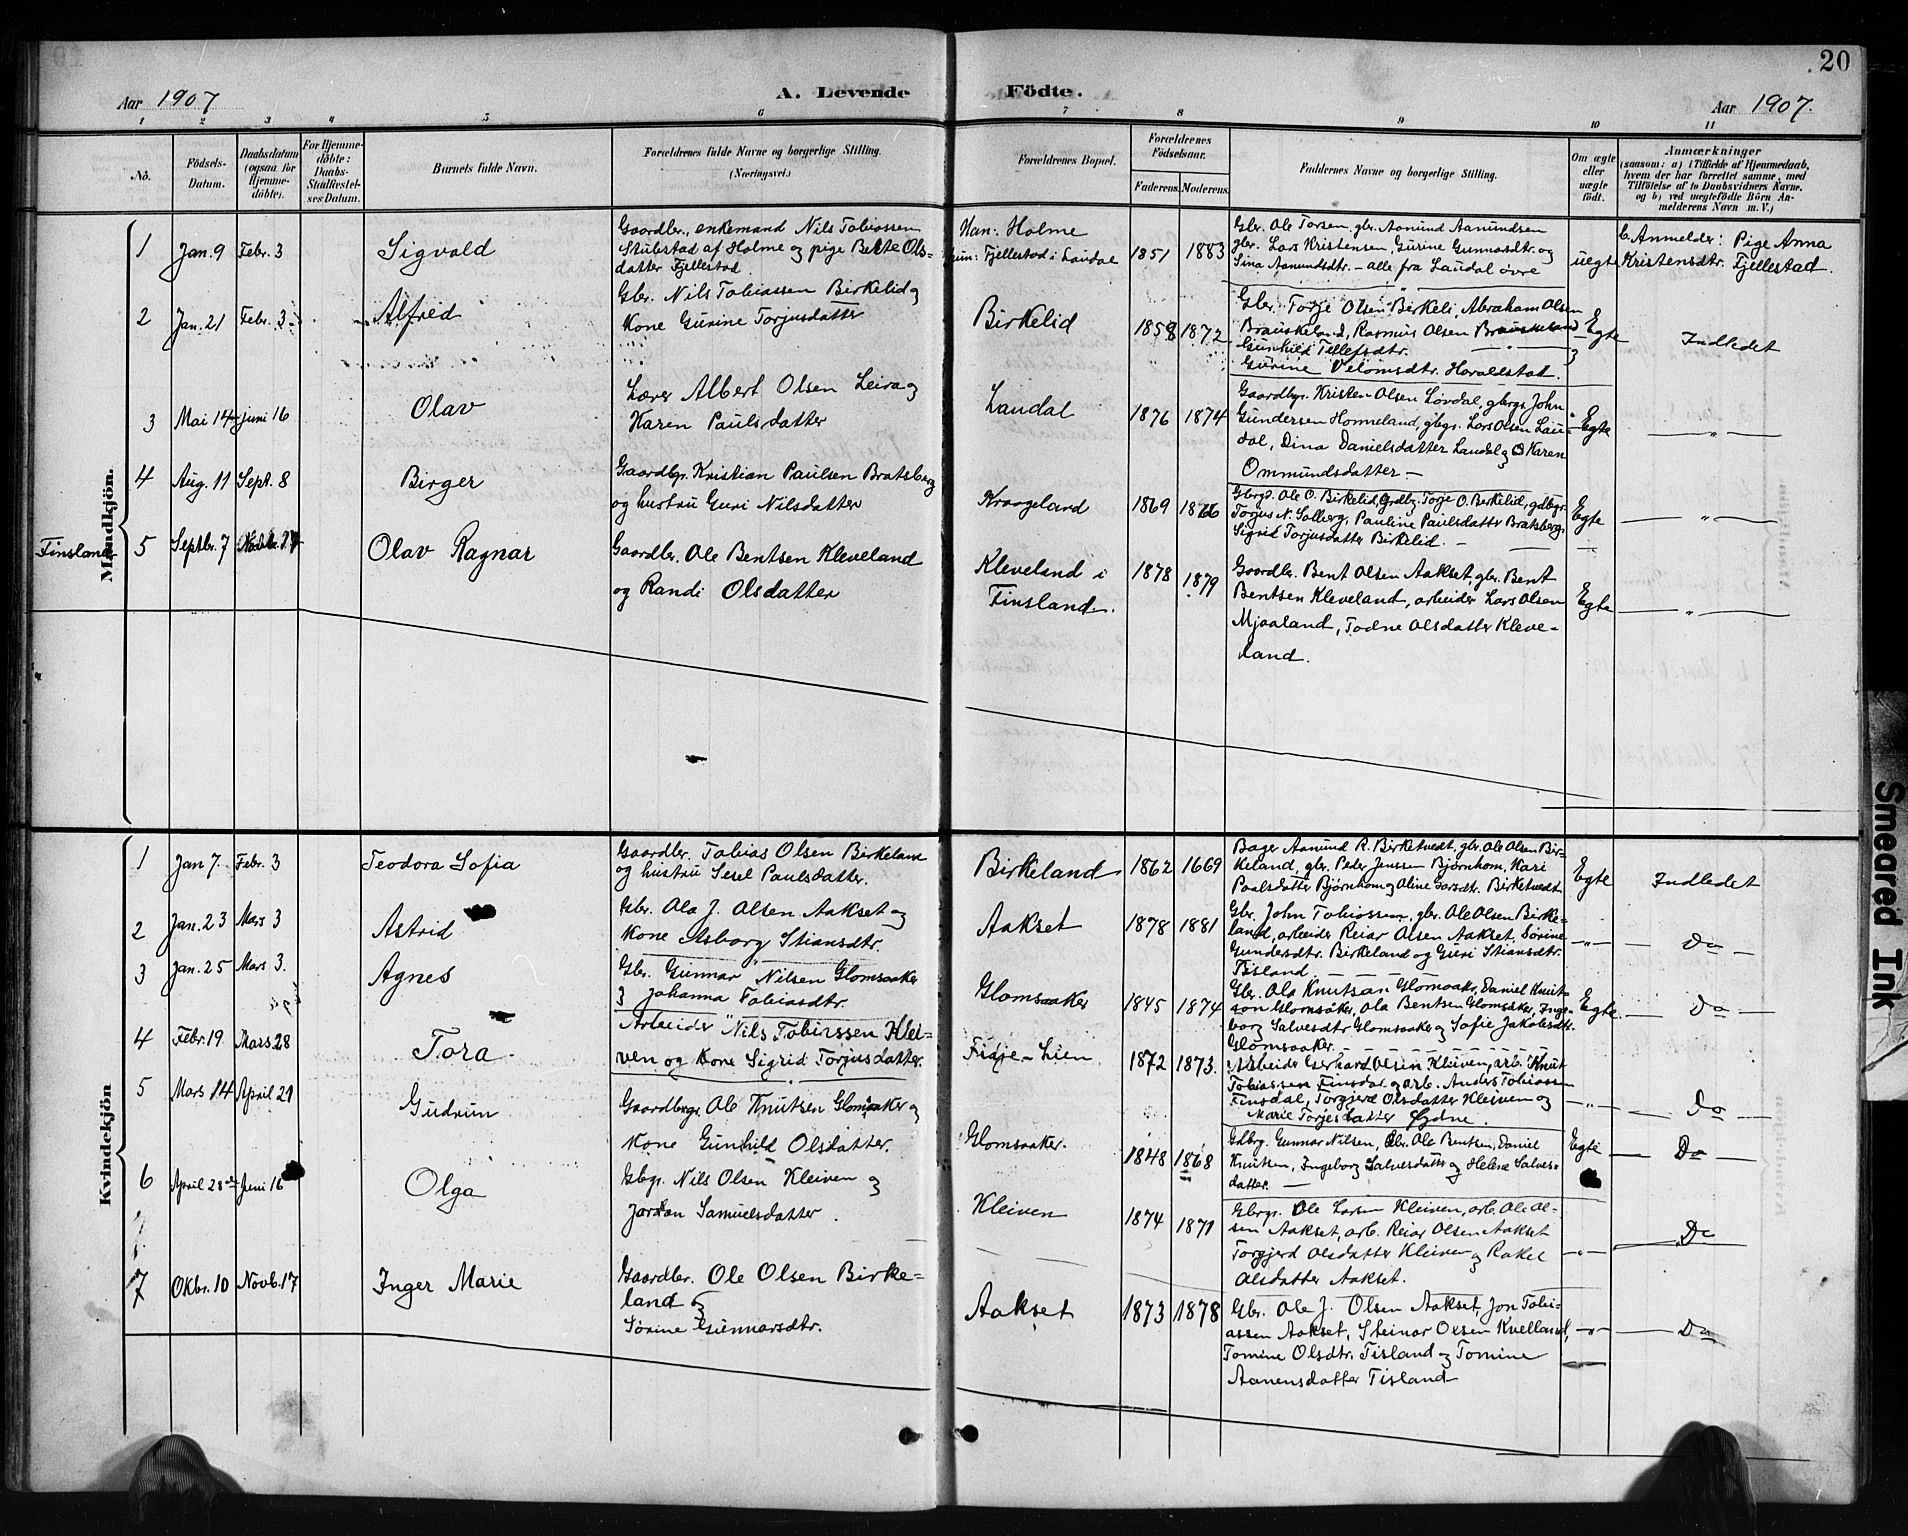 20
Aar 1907
A. Levende Födte.
Aar 1907.
1 2 3 4 5 6 7 8 9 10 11
No.
Födsels-Datum.
Daabsdatum (ogsaa for Hjemmedöbte).
For Hjemmedöbte: Daabs-Stadfæstelses Datum.
Barnets fulde Navn.
Forældrenes fulde Navne og borgerlige Stilling. (Næringsvei.)
Forældrenes Bopæl.
Forældrenes Födselsaar.
Faderens. Moderens.
Faddernes Navne og borgerlige Stilling.
Om ægte eller uægte födt.
Anmærkninger
(saasom: a) i Tilfælde af Hjemmedaab,
hvem der har forrettet samme, med
Tilföielse af to Daabsvidners Navne,
og b) ved uægtefödte Börn An-
melderens Navn m. V.)
Mandkjön.
1 Jan. 9 Febr. 3 Sigvald
Gaardbr., enkemand Nils Tobiassen
Stubstad af Holme og pige Berte Ols-
datter Fjellestad.
Han: Holme
hun: Fjellestad i Laudal
1851 1883
Gbr. Ole Torsen, gbr. Aanund Aanundsen
gbr. Lars Kristensen, Gurine Gunnarsdtr. og
Sina Aanundsdtr. - alle fra Laudal övre
uegte
b. Anmelder: Pige Anna
Kristensdtr. Fjellestad.
2 Jan. 21 Febr. 3 Alfred
Gbr. Nils Tobiassen Birkelid og
Kone Gurine Torjusdatter
Birkelid
1858 1872
Gbr. Torje Olsen Birkeli, Abraham Olsen
Brauskeland, Rasmus Olsen Brauskeland
Gunhild Tellefsdtr.
Gurine Velomsdtr. Haraldstad.
Egte
Indledet
3 Mai 14 juni 16 Olav
Lærer Albert Olsen Leira og
Karen Paulsdatter
Laudal
1876 1874
Gaardbgr. Kristen Olsen Lövdal, gbrgr. John
Gundersen Honneland, gbgr. Lars Olsen Lau-
dal, Dina Danielsdatter Laudal og Karen
Ommundsdatter -
Egte
"
4 Aug. 11 Sept. 8 Birger
Gaardbgr. Kristian Paulsen Bratsberg
og hustru Guri Nilsdatter
Kraageland
1869
Gbrgr. Ole O. Birkelid, Grdbr. Torje O. Birkelid, gdbgr.
Torjus N. Solberg, Pauline Paulsdatter Bratsberg,
Sigrid Torjusdatter Birkelid. -
Egte
"
Finsland
5 Septbr. 7 Olav Ragnar
Gaardbr. Ole Bentsen Kleveland
og Randi Olsdatter
Kleveland i
Finsland.
1878 1879
Gaardbr. Bent Olsen Aakset, gbr. Bent
Bentsen Kleveland, arbeider Lars Olsen
Mjaaland, Todne Olsdatter Kleve-
land.
Egte
"
Kvindekjön
1 Jan 7 Febr. 3 Teodora Sofia
Gaardbr. Tobias Olsen Birkeland
og hustru Sesel Paulsdatter.
Birkeland
1862 1669
Bager Aanund R. Birketvedt, gbr. Ole Olsen Bir-
keland, gbr. Peder Jenssen Bjørnhom, Kari
Paalsdatter Bjørnhom og Aline Larsdtr. Birketvedt
Egte
Indledet
2 Jan. 23 Mars 3 Astrid
Gbr. Ola J. Olsen Aakset og
Kone Asborg Stiansdtr.
Aakset
1878 1881
Gbr. John Tobiassen, gbr. Ole Olsen Birke-
land, arbeider Reiar Olsen Aakset, Sörine
Gundersdtr. Birkeland og Guri Stiansdtr.
Tisland
"
Do
3 Jan. 25 Mars 3. Agnes
Gbr. Gunnar Nilsen Glomsaaker
og Johanna Tobiasdtr.
Glomsaaker
1845 1874
Gbr. Ola Knutsan Glomsakr, Daniel Knut-
son Glomsåker, Ola Bentsen Glomsåker, Inge-
borg Salvesdtr Glomsaaker og Sofie Jakobsdtr.
Glomsaaker.
Egte
Do
4 Febr. 19 Mars 28 Tora
Arbeider Nils Tobiassen Klei-
ven og Kone Sigrid Torjusdatter.
Fidje-Lien
1872 1873.
Arbeider Gerhard Olsen Kleiven, arb. Knut
Tobiassen Finsdal og arb. Anders Tobiassen
Finsdal, Torgjerd Olsdatter Kleiven og
Marie Torjesdatter Øydne.
"
Do
5 Mars 14 April 21 Gudrun
Gaardbrgr. Ole Knutsen Glomsaaker og
Kone Gunhild Olsdatter.
Glomsaaker.
1848 1868
Gdbrg. Gunnar Nilsen, Gbr. Ole Bentsen, Daniel
Knutsen, Ingeborg Salvesdatter og Helene Salves-
datter. -
Egte
Do
6 April 28 Juni 16 Olga
Gbgr. Nils Olsen Kleiven og
Jordan Samuelsdatter.
Kleiven
1874 1871
Gbrgr. Ole Larsen Kleiven, arb. Ole Ol-
sen Aakset, arb. Reiar Olsen Aakset
Torgjerd Olsdatter Kleiven og Rakel
Olsdatter Aakset.
"
Do
7 Oktbr. 10 Novb. 17 Inger Marie
Gaardbr. Ole Olsen Birke-
land og
Sörine Gunnarsdtr.
Aakset
1873 1878
Gbr. Ole J. Olsen Aakset, Jon Tobi-
assen Aakset, Steinar Olsen Kvelland,
Tomine Olsdtr. Tisland og Tomine
Aanensdatter Tisland
"
Do
Smeared Ink